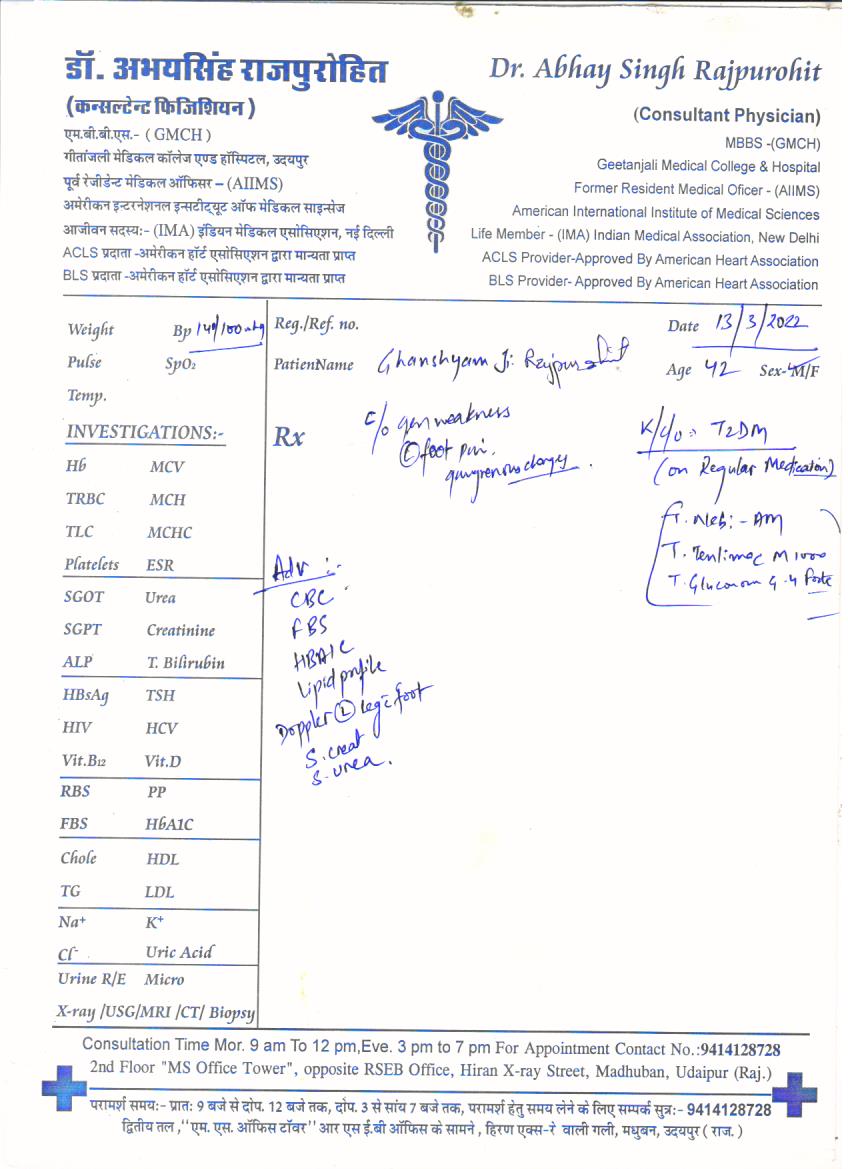 डॉ. अभयसिंह राजपुरोहित
(कन्सल्टेन्ट फिजिशियन)
एम.बी.बी.एस.- ( GMCH )
गीतांजली मेडिकल कॉलेज एण्ड हॉस्पिटल, उदयपुर
पूर्व रेजीडेन्ट मेडिकल ऑफिसर – (AIIMS)
अमेरीकन इन्टरनेशनल इन्सटीट्यूट ऑफ मेडिकल साइन्सेज
आजीवन सदस्यः- (IMA) इंडियन मेडिकल एसोसिएशन, नई दिल्ली
ACLS प्रदाता -अमेरीकन हॉर्ट एसोसिएशन द्वारा मान्यता प्राप्त
BLS प्रदाता -अमेरीकन हॉर्ट एसोसिएशन द्वारा मान्यता प्राप्त
Dr. Abhay Singh Rajpurohit
(Consultant Physician)
MBBS -(GMCH)
Geetanjali Medical College & Hospital
Former Resident Medical Oficer - (AIIMS)
American International Institute of Medical Sciences
Life Member - (IMA) Indian Medical Association, New Delhi
ACLS Provider-Approved By American Heart Association
BLS Provider- Approved By American Heart Association
Weight Bp /100
Pulse SpO2
Temp.
Reg./Ref. no.
Date 13/3/2022
PatienName Ghanshyam Ji Rajpurohit
Age 42 Sex-M/F
INVESTIGATIONS:-
Hb MCV
TRBC MCH
TLC MCHC
Platelets ESR
SGOT Urea
SGPT Creatinine
ALP T. Bilirubin
HBsAg TSH
HIV HCV
Vit.B12 Vit.D
RBS PP
FBS HbA1C
Chole HDL
TG LDL
Na+ K+
Cl- Uric Acid
Urine R/E Micro
X-ray /USG/MRI /CT/ Biopsy
Rx
C/o gen weakness
foot
gangrenous changes.
K/c/o :- T2DM
(on Regular Medication)
T. - AM
T. M 1000
T. G-4 Forte
Adv :-
CBC
FBS
HBA1C
Lipid profile
Doppler (L) leg c foot
S. creat
S. urea.
Consultation Time Mor. 9 am To 12 pm,Eve. 3 pm to 7 pm For Appointment Contact No.:9414128728
2nd Floor "MS Office Tower", opposite RSEB Office, Hiran X-ray Street, Madhuban, Udaipur (Raj.)
परामर्श समयः- प्रातः 9 बजे से दोप. 12 बजे तक, दोप. 3 से सांय 7 बजे तक, परामर्श हेतु समय लेने के लिए सम्पर्क सुत्रः- 9414128728
द्वितीय तल ,"एम. एस. ऑफिस टॉवर" आर एस ई.बी ऑफिस के सामने , हिरण एक्स-रे वाली गली, मधुबन, उदयपुर ( राज. )